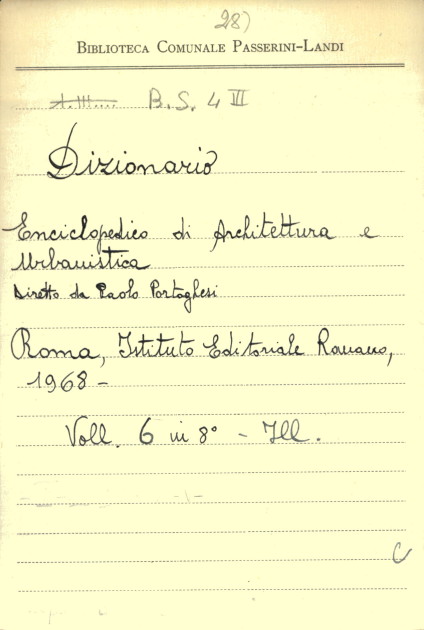 28)
BIBLIOTECA COMUNALE PASSERINI-LANDI
B.S. 4 VII
Dizionario
Enciclopedico di Architettura e
Urbanistica
Diretto da Paolo Portoghesi
Roma, Istituto Editoriale Romano,
1968 -
Voll. 6 in 8° - Ill.
C